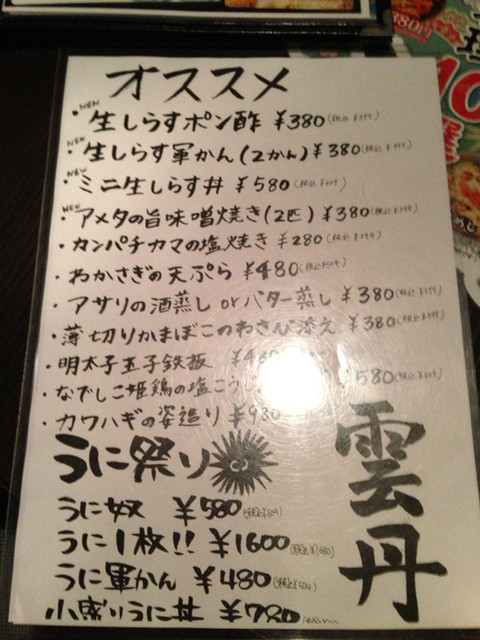 オススメ
NEW
・生しらすポン酢 ¥380(税込¥399)
NEW
・生しらす軍かん(2かん)¥380(税込¥399)
NEW
・ミニ生しらす丼 ¥580(税込¥609)
NEW
・アメタの旨味噌焼き(2匹)¥380(税込¥399)
・カンパチカマの塩焼き ¥280(税込¥294)
・わかさぎの天ぷら ¥480(税込¥504)
・アサリの酒蒸し orバター蒸し ¥380(税込¥399)
・薄切りかまぼこのわさび添え ¥380(税込¥399)
・明太子玉子鉄板 ¥480
・なでしこ姫鶏の塩こうじ ¥580(税込¥609)
・カワハギの姿造り ¥980
うに祭り
うに奴 ¥580(税込¥609)
うに1枚!! ¥1600(税込¥1680)
うに軍かん ¥480(税込¥504)
小盛りうに丼 ¥780
雲丹